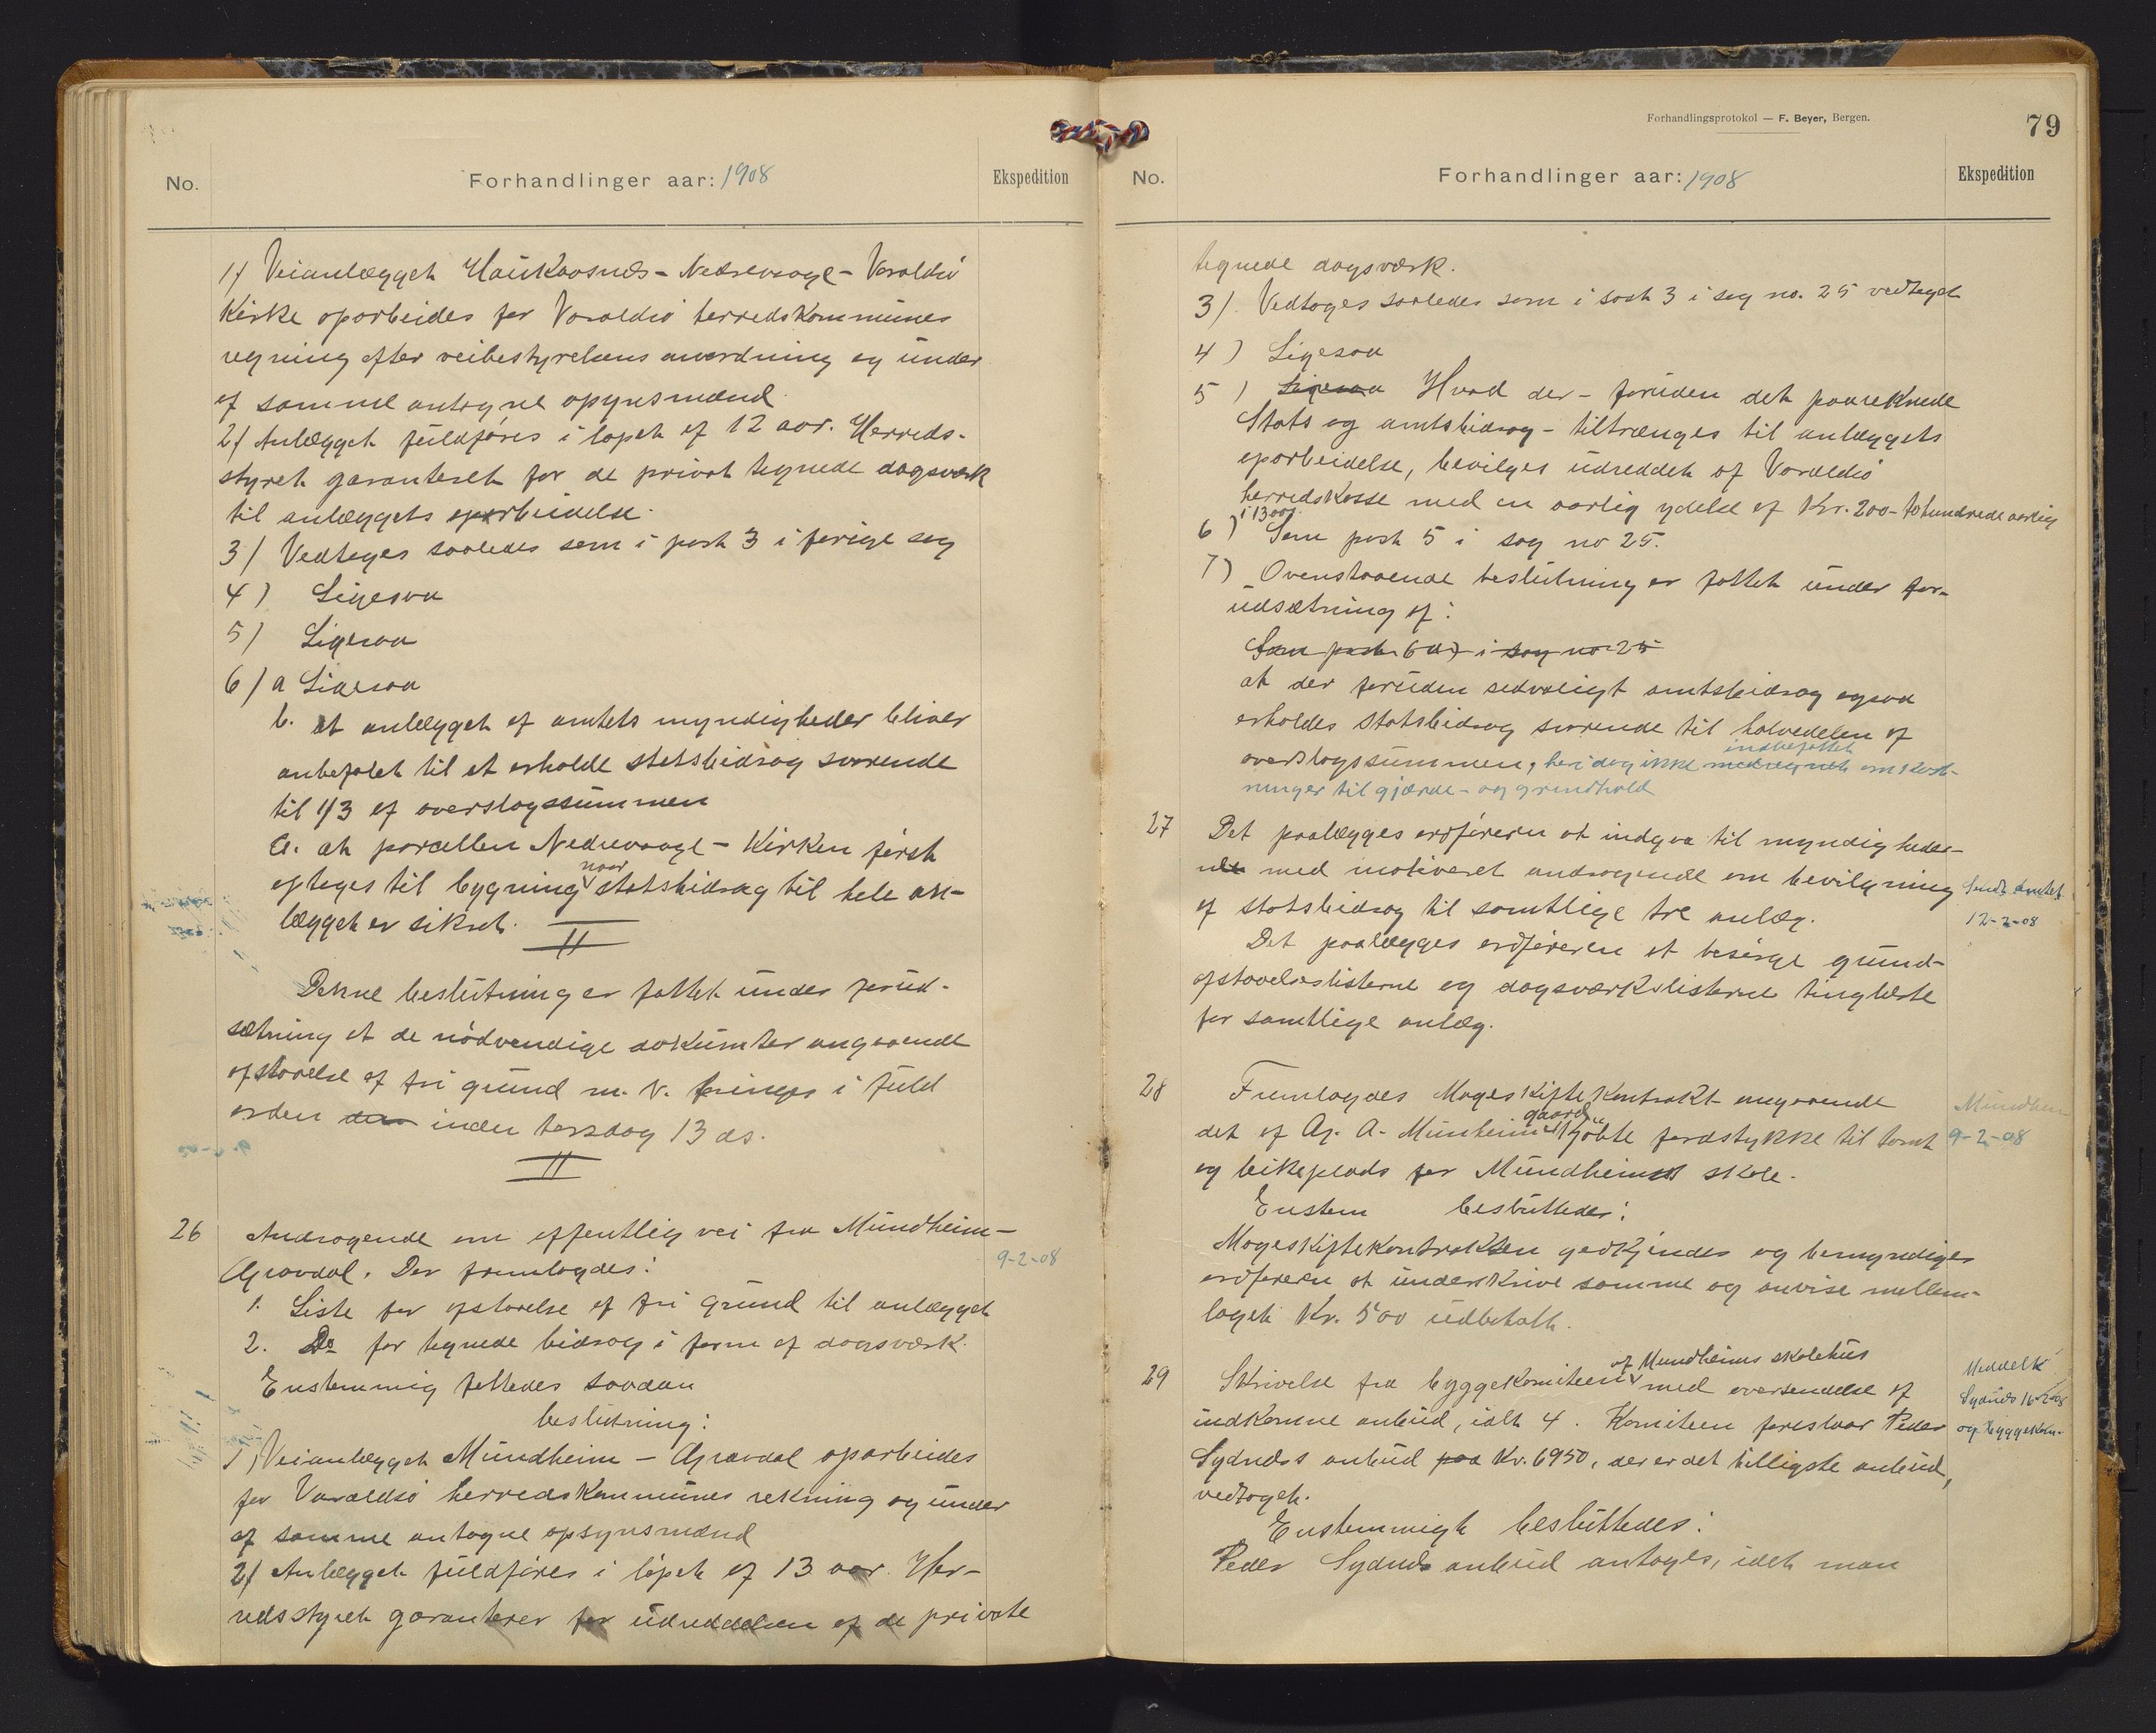 No.
Forhandlinger aar: 1908
Ekspedition
1) Veianlægget Haukaasnes - Nedrevaage - Varaldsö
Kirke oparbeides for Varaldsö herredskommunes
regning efter veibestyrelsens anordning og under
af samme antagne opsynsmænd
2) Anlægget fuldføres i løpet af 12 aar. Herreds-
styret garanteret for de privat tegnede dagsværk
til anlæggets oparbeidelse.
3) Vedtages saaledes som i post 3 i forige sag
4) Ligesaa
5) Ligesaa
6) a Ligesaa
b. at anlægget af amtets myndigheder bliver
anbefalet til at erholde statsbidrag svarende
til 1/3 af overslagssummen
c. at parcellen Nedrevaage - Kirken først
optages til bygning naar statsbidrag til hele an-
lægget er sikret.
Denne beslutning er fattet under forud-
sætning at de nødvendige dokumter angaaende
afstaaelse af fri grund m. v. bringes i fuld
orden inden torsdag 13 ds.
26 Andragende om offentlig vei fra Mundheim -
Gravdal. Der fremlagdes:
9-2-08
1. Liste for afstaaelse af fri grund til anlægget
2. Do for tegnede bidrag i form af dagsværk.
Enstemmig fattedes saadan
beslutning:
1) Veianlægget Mundheim - Gravdal oparbeides
for Varaldsö herredskommunes rekning og under
af samme antagne opsynsmænd
2) Anlægget fuldføres i løpet af 13 aar. Her-
redsstyret garanterer for udreddelsen af de private
Forhandlingsprotokol — F. Beyer, Bergen.
79
No.
Forhandlinger aar: 1908
Ekspedition
tegnede dagsværk.
3). Vedtages saaledes som i post 3 i sag no. 25 vedtaget
4) Ligesaa
5) Ligesaa Hvad der - foruden det paareknede
Stats og amtsbidrag - tiltrænges til anlæggets
oparbeidelse, bevilges udreddet af Varaldsö
herredskasse med en aarlig ydelse af Kr. 200 - tohundrede aarlig
i 13 aar.
6) Som post 5 i sag no 25.
7) Ovenstaaende beslutning er fattet under for-
udsætning af:
Som post 6 a) i sag no 25
at der foruden sedvaligt amtsbidrag ogsaa
erholdes statsbidrag svarende til halvedelen af
overslagssummen, heri dog ikke medregnet indbefattet omkost-
ninger til gjærde- og grindhold
27 Det paalægges ordføreren at indgaa til myndighede-
ne med motiveret andragende om bevilgning
af statsbidrag til samtlige tre anlæg.
Sendt Amtet
12-2-08
Det paalægges ordføreren at besørge grund-
afstaaelseslisterne og dagsværkslisterne tinglæste
for samtlige anlæg.
28 Fremlagdes Mageskiftekontrakt angaaende
det af Aj. A. Munheim gaard kjøbte jordstykke til tomt
og leikeplads for Mundheims skole.
Mundheim
9-2-08
Enstem besluttedes:
Mageskiftekontrakten godkjendes og bemyndiges
ordføreren at underskrive samme og anvise mellem-
laget Kr. 500 udbetalt.
29 Skrivelse fra byggekomiteen af Mundheims skolehus med oversendelse af
indkomne anbud, ialt 4. Komiteen foreslaar Peder
Sydnes's anbud paa Kr. 6950, der er det billigste anbud,
vedtaget.
Meddelt
Sydnes 16-2-08
og byggekom.
Enstemmigt besluttedes:
Peder Sydnes anbud antages, idet man